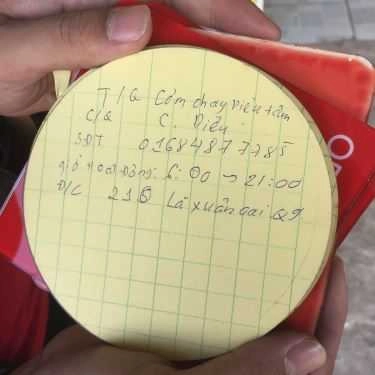 T/Q Cơm chay Diệu tâm
C/Q C. Diệu
SĐT 01684877785
giờ hoạt động: 6:00 ~ 21:00
Đ/C 216 Lã xuân oai Q9